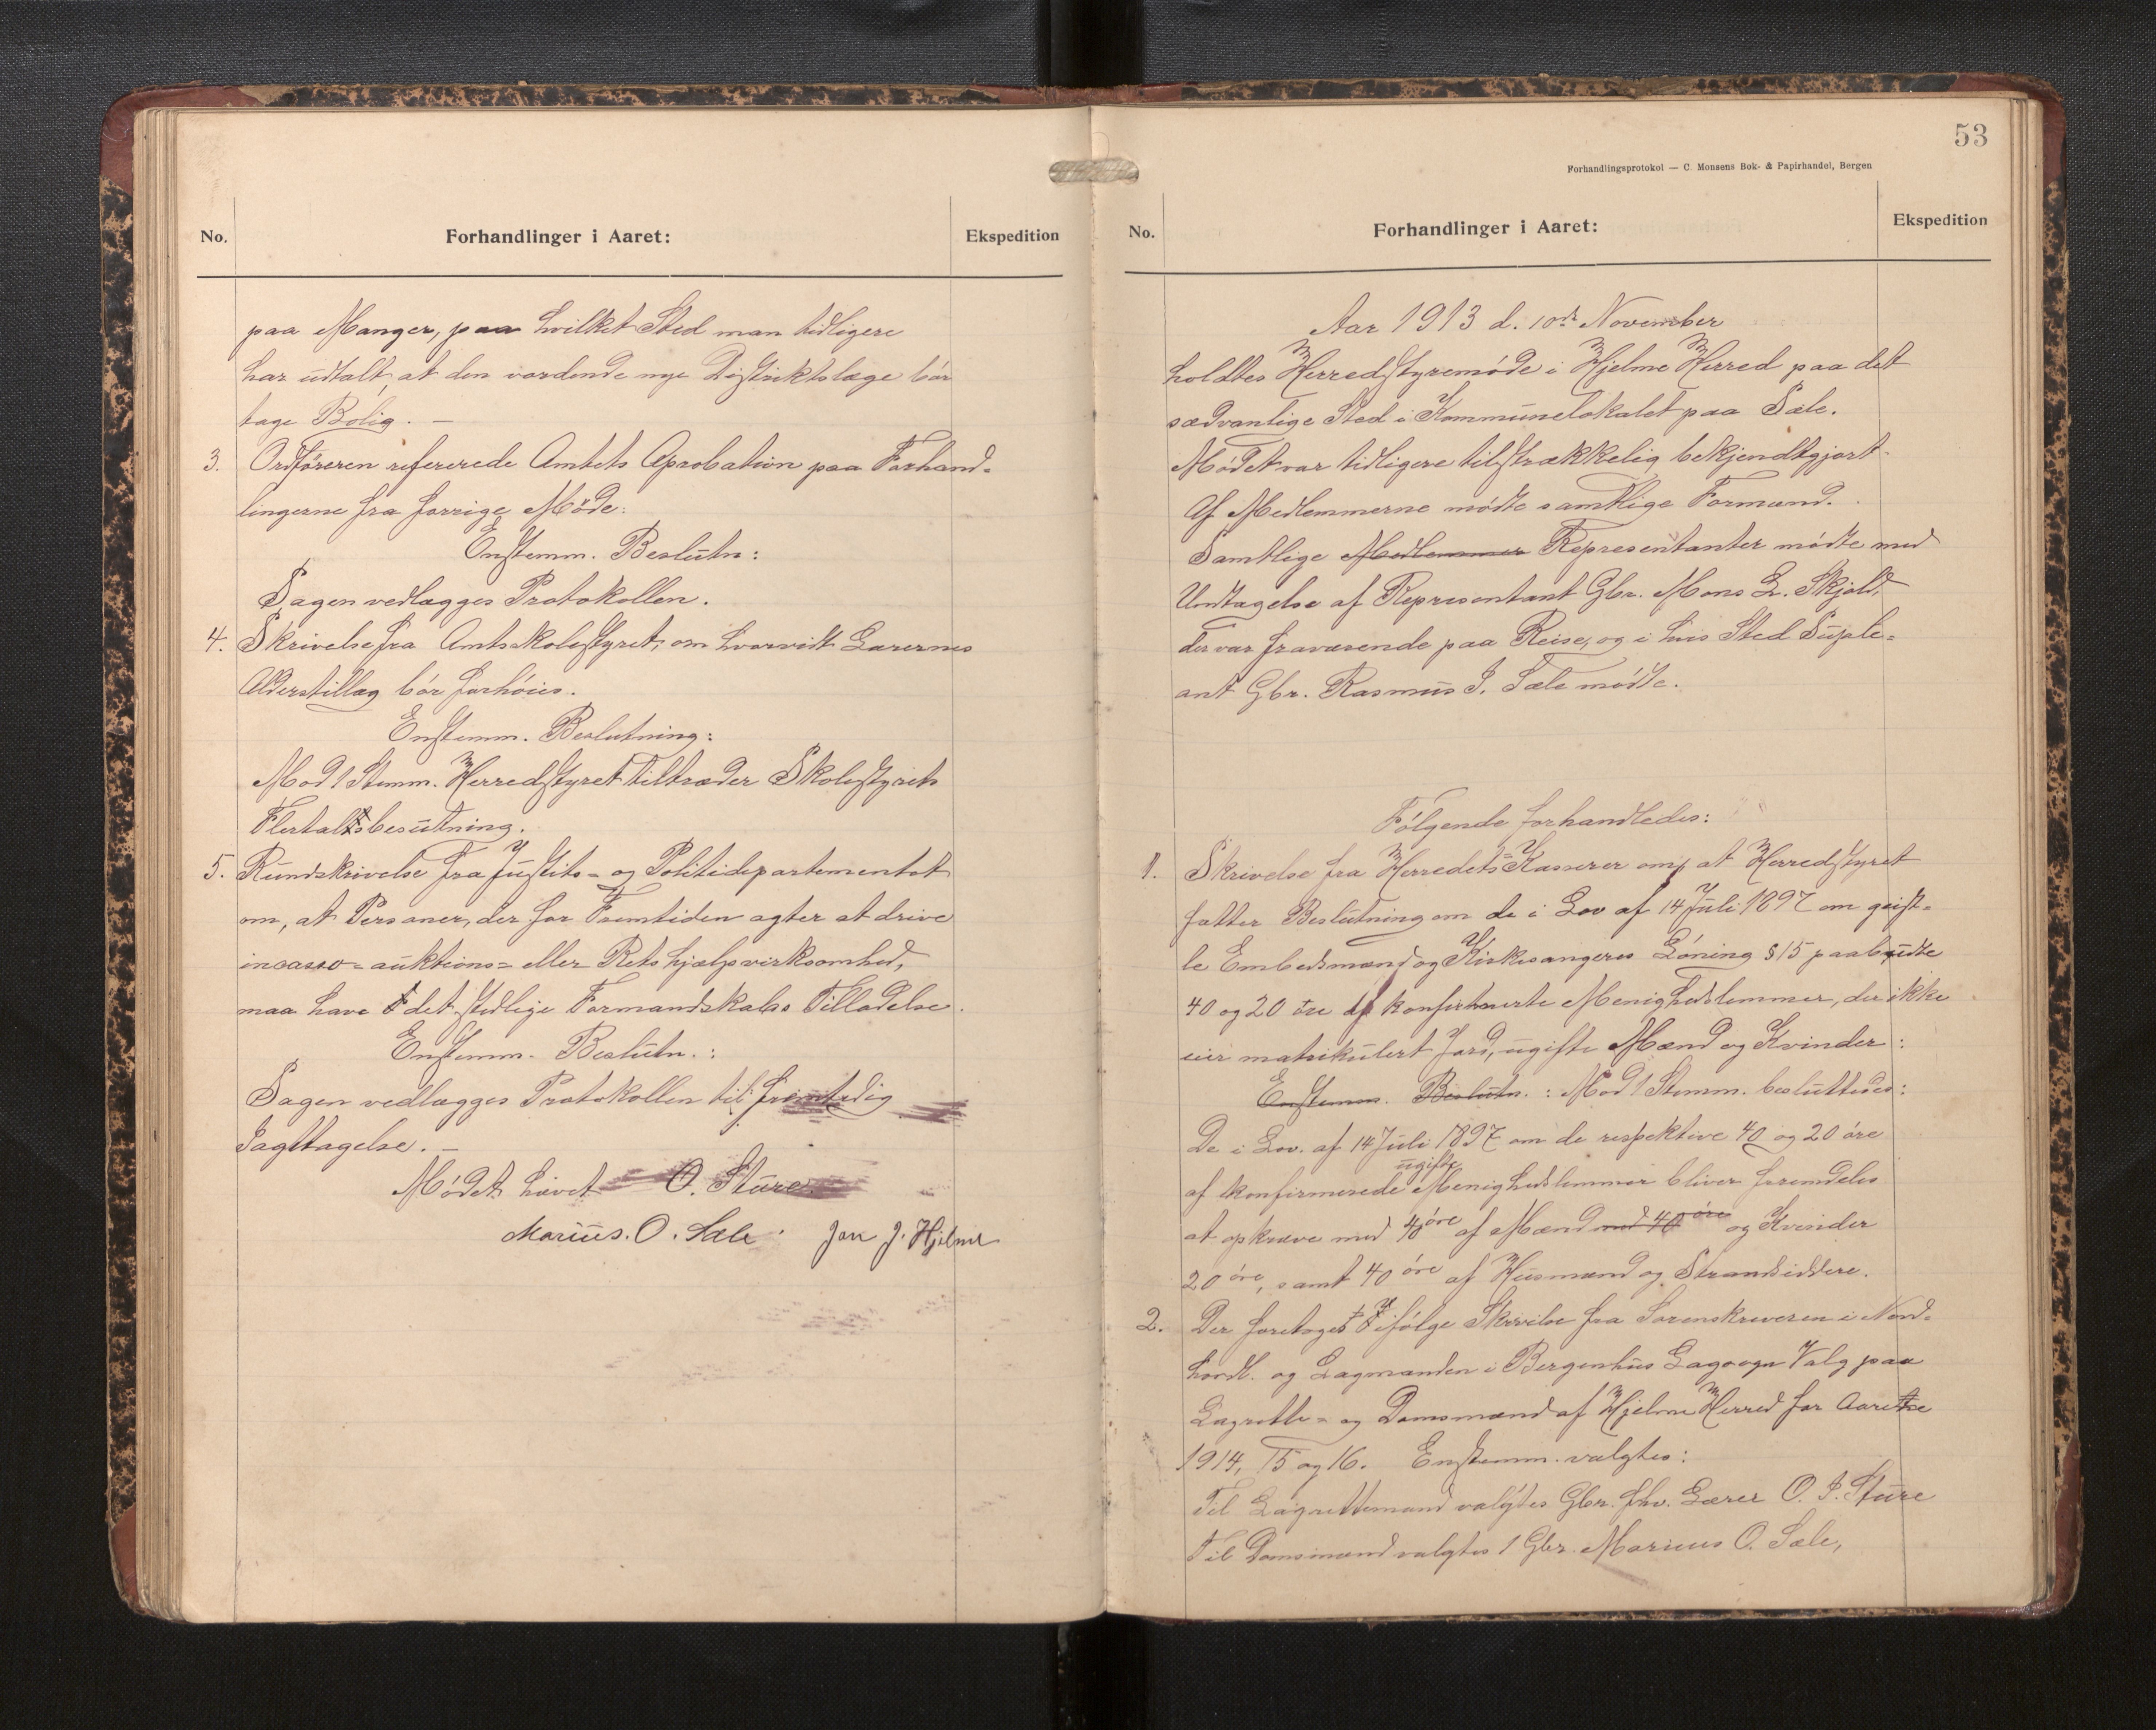 No.
Forhandlinger i Aaret:
Ekspedition
paa Manger, paa hvilket Sted man tidligere
har udtalt, at den vordende nye Distriktslæge bör
tage Bolig. —
3. Ordföreren refererede Amtets Aprobation paa Forhand-
lingerne fra forrige Möde:
Enstemm. Beslutn:
Sagen vedlægges Protokollen.
4. Skrivelse fra Amtsskolestyret, om hvorvidt Lærernes
Alderstillæg bör forhöies.
Enstemm. Beslutning:
Mod 1 Stemm. Herredstyret tiltræder Skolestyrets
Flertalsbesutning.
5. Rundskrivelse fra Justits- og Politidepartementet
om, at Personer, der for Fremtiden agter at drive
incasso- auktions- eller Retshjælpsvirksomhed,
maa have det stedlige Formandskabs Tilladelse.
Enstemm. Beslutn.:
Sagen vedlægges Protokollen til fremtidig
Iagttagelse. —
Mödet hævet O. Sture
Marius. O. Sæle. Jon J. Hjelme
53
Forhandlingsprotokol — C. Monsens Bok- & Papirhandel, Bergen
No.
Forhandlinger i Aaret:
Ekspedition
Aar 1913 d. 10de November
holdtes Herredstyremøde i Hjelme Herred paa det
sædvanlige Sted i Kommunelokalet paa Sæle.
Mødet var tidligere tilstrækkelig bekjendtgjort.
Af Medlemmerne mødte samtlige Formænd.
Samtlige Medlemmer Representanter mødte med
Undtagelse af Representant Gbr. Mons L. Skjold,
der var fraværende paa Reise, og i hvis Sted Suple-
ant Gbr. Rasmus I. Sæle mödte.
Fölgende forhandledes:
1. Skrivelse fra Herredets Kasserer om, at Herredstyret
fatter Beslutning om de i Lov af 14 Juli 1897 om geist-
le Embedsmænd og Kirkesangeres Löning § 15 paabudte
40 og 20 öre af konfirmerte Menighedslemmer, der ikke
eier matrikulert Jord, ugifte Mænd og Kvinder:
Enstemm. Beslutn.: Mod 1 Stemm. besluttedes:
De i Lov. af 14 Juli 1897 om de respektive 40 og 20 öre
ugifte
af konfirmerede Menighedslemmer bliver fremdeles
at opkræve med 40 öre af Mænd med 40 öre og Kvinder
20 öre, samt 40 öre af Husmænd og Strandsiddere.
2. Der foretoges ifölge Skrivelse fra Sorenskriveren i Nord-
hordl. og Lagmanden i Bergenhus Lagsogn Valg paa
Lagrette- og Domsmænd af Hjelme Herred for Aarene
1914, 15 og 16. Enstemm. valgtes:
Til Lagrettemænd valgtes Gbr. fhv. Lærer O. I. Sture
Til Domsmænd valgtes 1 Gbr. Marius O. Sæle,